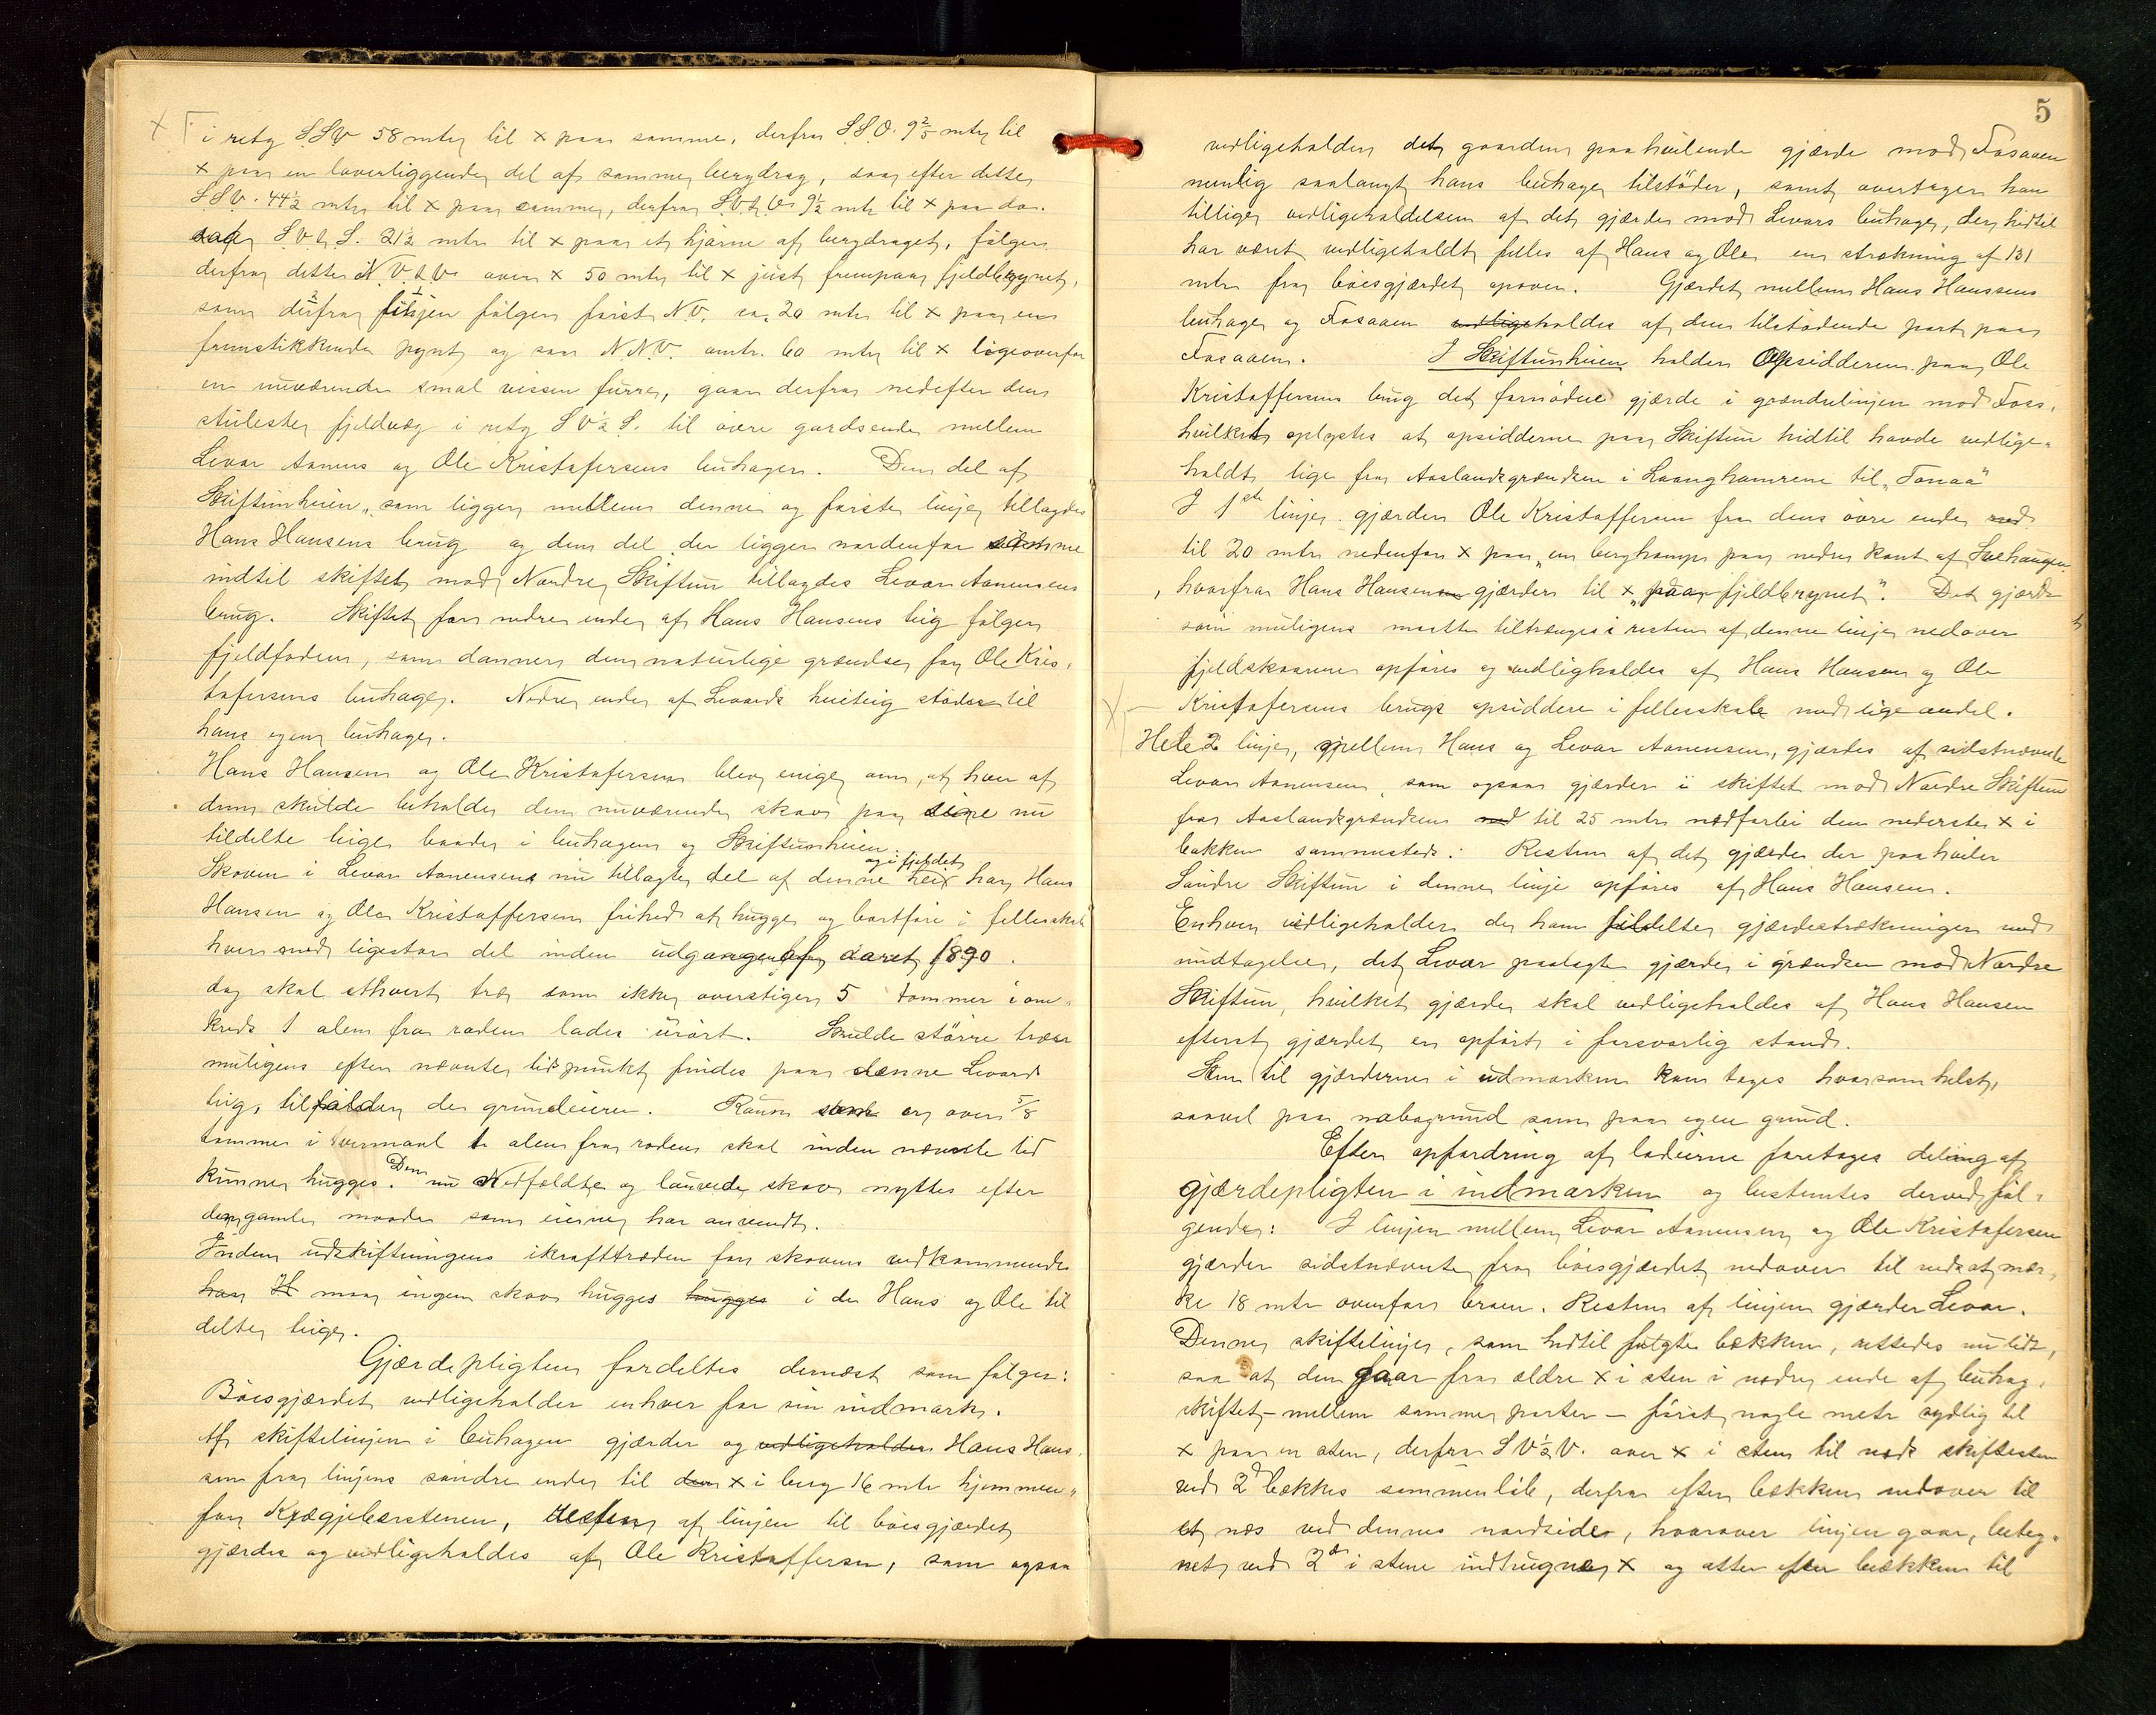 i retg SSV 58 mtr til x paa samme, derfra SSO. 9 2/5 mtr til
x paa en laverliggende del af samme bergdrag, saa efter dette
SSV. 44½ mtr til x paa samme, derfra SVtV 9½ mtr til x paa do.
saa SVtS. 21½ mtr til x paa et hjørne af bergdraget, følger
derfra dette NVtV over x 50 mtr til x just frempaa fjeldbrynet,
som derfra linjen følger først NV. ca. 20 mtr til x paa en
fremstikkende pynt og saa N.N.V. omtr. 60 mtr til x ligeoverfor
en nuværende smal vissen furre, gaar derfra nedefter den
stuleste fjeldvæg i retg SV½S. til øvre gardsende mellem
Levor Aanens og Ole Kristofersens buhager. Den del af
Skiftunheien, som ligger mellem denne og første linje tillagdes
Hans Hansens brug og den del der ligger nordenfor samme
indtil skiftet mod Nordre Skiftun tillagdes Levor Aanensens
brug. Skiftet for nedre ende af Hans Hansens teig følger
fjeldfoden, som danner den naturlige grændse for Ole Kris-
tofersens buhage. Nedre ende af Levords heiteig støder til
hans egen buhage.
Hans Hansen og Ole Kristofersen blev enige om, at hver af
dem skulde beholde den nuværende skov paa sine nu
tildelte teige baade i buhagen og Skiftunheien.
og i fjeldet
Skoven i Levor Aanensens nu tillagte del af denne hei har Hans
Hansen og Ole Kristoffersen frihed at hugge og bortføre i fellesskab
hver med ligestor del inden udgangen af aaret 1890.
dog skal ethvert træ som ikke overstiger 5 tommer i om-
kreds 1 alen fra roden lades urørt. Skulde større træer
muligens efter nævnte tidspunkt findes paa denne Levords
teig, tilfalder de grundeieren. Raun som er over 5/8
tommer i tvermaal 1 alen fra roden skal inden nævnte tid
kunne hugges. Den nu Nedfældte og lauvede skov nyttes efter
den gamle maade som eierne har anvendt.
Inden udskiftningens ikrafttræden for skovens vedkommende
har H maa ingen skov hugges hugges i de Hans og Ole til
delte teige.
Gjærdepligten fordeltes dernæst som følger:
Bøesgjærdet vedligeholder enhver for sin indmark.
Af skiftelinjen i buhagen gjærder og vedligeholder Hans Hans-
sen fra linjens søndre ende til den x i berg 16 mtr hjemmen-
for Krægjebærstenen, resten af linjen til bøesgjærdet
gjærdes og vedligeholdes af Ole Kristoffersen, som ogsaa
5
vedligeholder det gaarden paahvilende gjærde mod Fosaaen
nemlig saalangt hans buhage tilstøder, samt overtager han
tillige vedligeholdelsen af det gjærde mod Levors buhage, der hidtil
har været vedligeholdt felles af Hans og Ole en strækning af 131
mtr fra bøesgjærdet opover. Gjærdet mellem Hans Hanssens
buhage og Fosaaen vedligeholdes af den tilstødende part paa
Fosaaen. I Skiftunheien holder Opsidderen paa Ole
Kristoffersens brug det fornødne gjærde i grændselinjen mod Foss,
hvilket oplystes at opsidderne paa Skiftun hidtil havde vedlige-
holdt lige fra Aaslandsgrændsen i Laanghamrene til "Tonaa"
I 1ste linje gjærder Ole Kristoffersen fra dens øvre ende ned
til 20 mtr nedenfor x paa en berghamp paa nedre kant af
hvorfra Hans Hansen gjærder til x "paa fjeldbrynet". Det gjærde
som muligens maatte tiltrænges i resten af denne linje nedover
fjeldskaarene opføres og vedligholdes af Hans Hansen og Ole
Kristofersens brugs opsiddere i fellesskab med lige andel.
Hele 2 linje, mellem Hans og Levor Aanensen, gjærdes af sidstnævnte
Levor Aanensen, som ogsaa gjærder i skiftet mod Nordre Skiftun
fra Aaslandsgrændsen ned til 25 mtr nedforbi den nederste x i
bakken sammesteds. Resten af det gjærde der paahviler
Søndre Skiftun i denne linje opføres af Hans Hansen.
Enhver vedligeholder de ham tildelte gjærdestrækninger med
undtagelse, det Levor paalagte gjærde i grændsen mod Nordre
Skiftun, hvilket gjærde skal vedligeholdes af Hans Hansen
efterat gjærdet er opført i forsvarlig stand.
Sten til gjærderne i udmarken kan tages hvorsomhelst,
saavel paa nabogrund som paa egen grund.
Efter opfordring af lodeierne foretages deling af
gjærdepligten i indmarken og bestemtes derved føl-
gende: I linjen mellem Levor Aanensen og Ole Kristofersen
gjærder sidstnævnte fra bøesgjærdet nedover til nedsat mær-
ke 18 mtr ovenfor broen. Resten af linjen gjærder Levor.
Denne skiftelinje, som hidtil fulgte bækken, rettedes nu lidt,
saa at den gaar fra ældre x i sten i nedre ende af buhag-
skiftet – mellem samme parter – først nogle mtr sydlig til
x paa en sten, derfra SV½V. over x i sten til neds. skiftesten
ved 2de bækkes sammenløb, derfra efter bækken nedover til
et næs ved dennes nordside, hvorover linjen gaar, beteg-
net ved 2de i stene indhugne x og atter efter bækken til